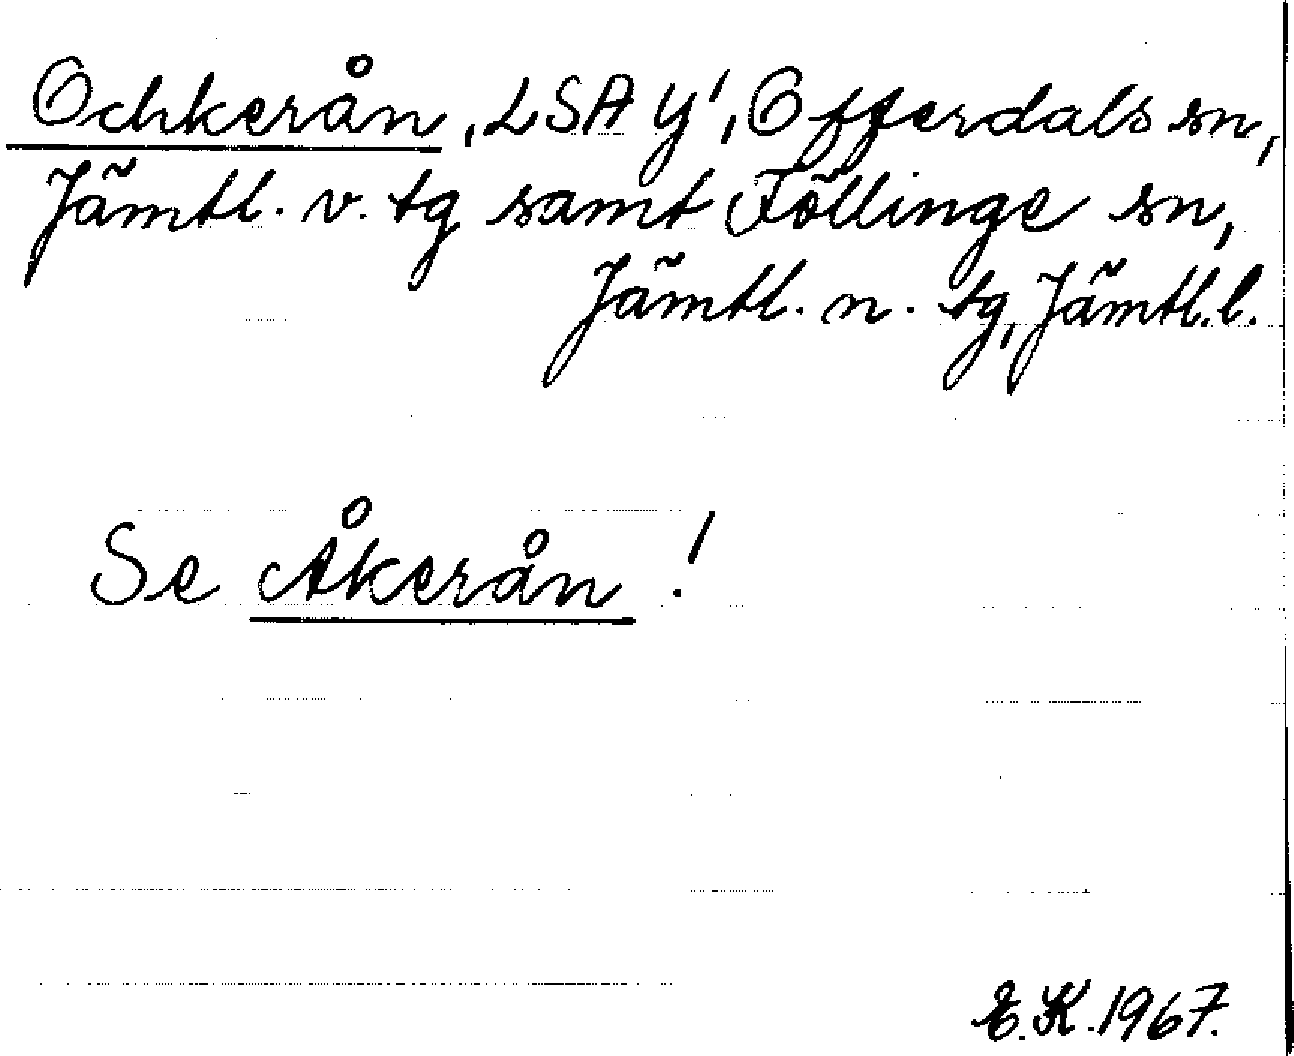 Ochkerån, LSA Y', Offerdals sn,
Jämtl. v. tg samt Föllinge sn,
Jämtl. n. tg, Jämtl.l.
Se Åkerån!
E.K. 1967.